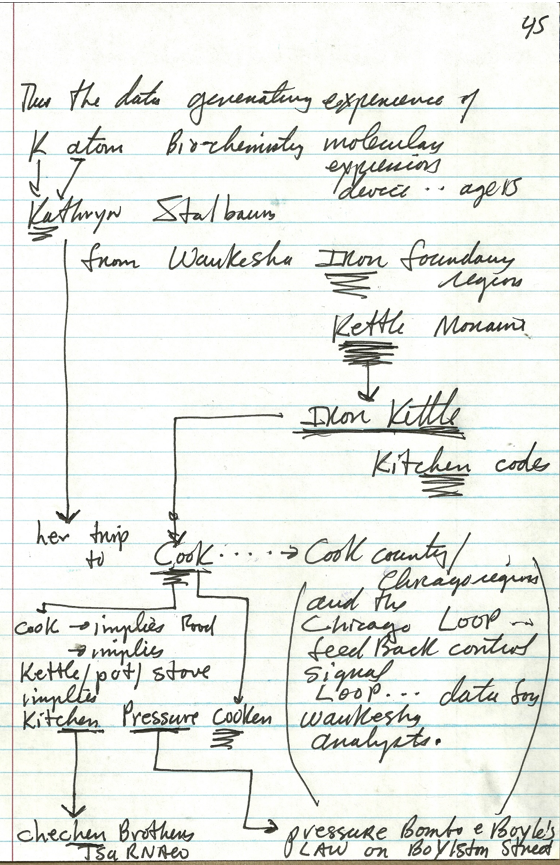 45
Thus the data generating experience of
K atom Bio-chemistry molecular
expression
device .. age 15
Kathryn Stalbaum
from Waukesha Iron foundary
region
Kettle Moraine
Iron Kettle
Kitchen codes
her trip
to
Cook ..... → Cook county/
Chicago region
and the
Chicago LOOP --
feed Back control
signal
LOOP... data for
Waukesha
analysts.
cook → implies Food
→ implies
Kettle/pot/stove
implies
Kitchen Pressure Cooker
chechen Brothers
TsaRNAev
pressure Bombs e Boyle's
LAW on Boylston Street